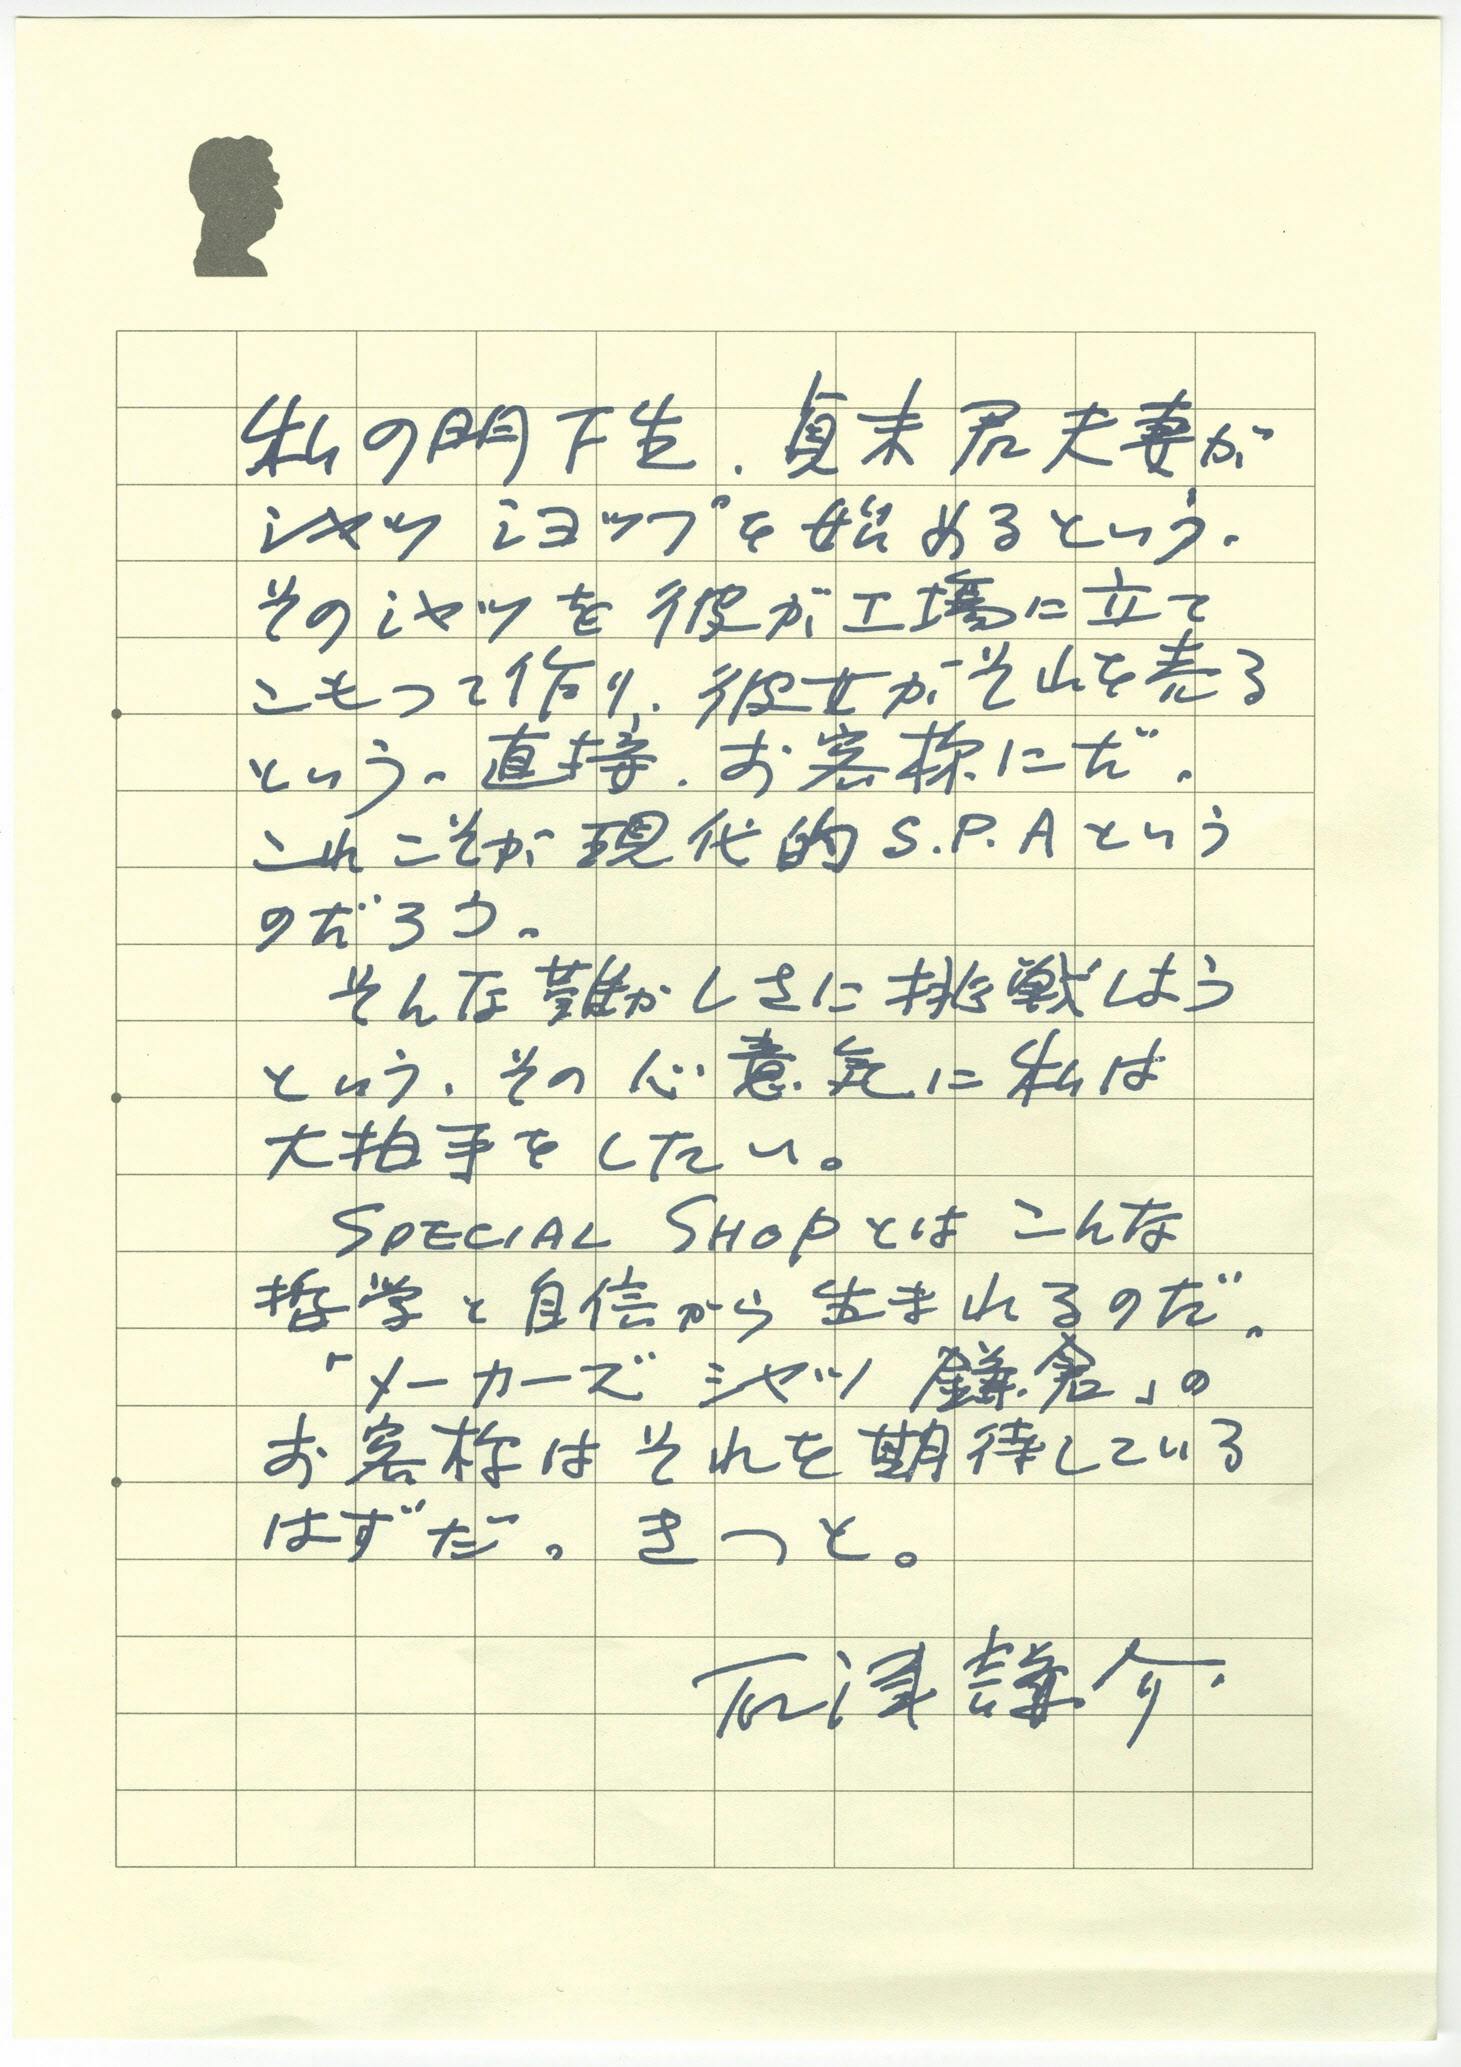 私の門下生、貞末君夫妻が
シャツショップを始めるという。
そのシャツを彼が工場に立て
こもって作り、彼女がそれを売る
という。直接、お客様にだ。
これこそが現代的S.P.Aという
のだろう。
そんな難かしさに挑戦しよう
という、その心意気に私は
大拍手をしたい。
SPECIAL SHOPとはこんな
哲学と自信から生まれるのだ。
「メーカーズシャツ鎌倉」の
お客様はそれを期待している
はずだ。きっと。
石津謙介